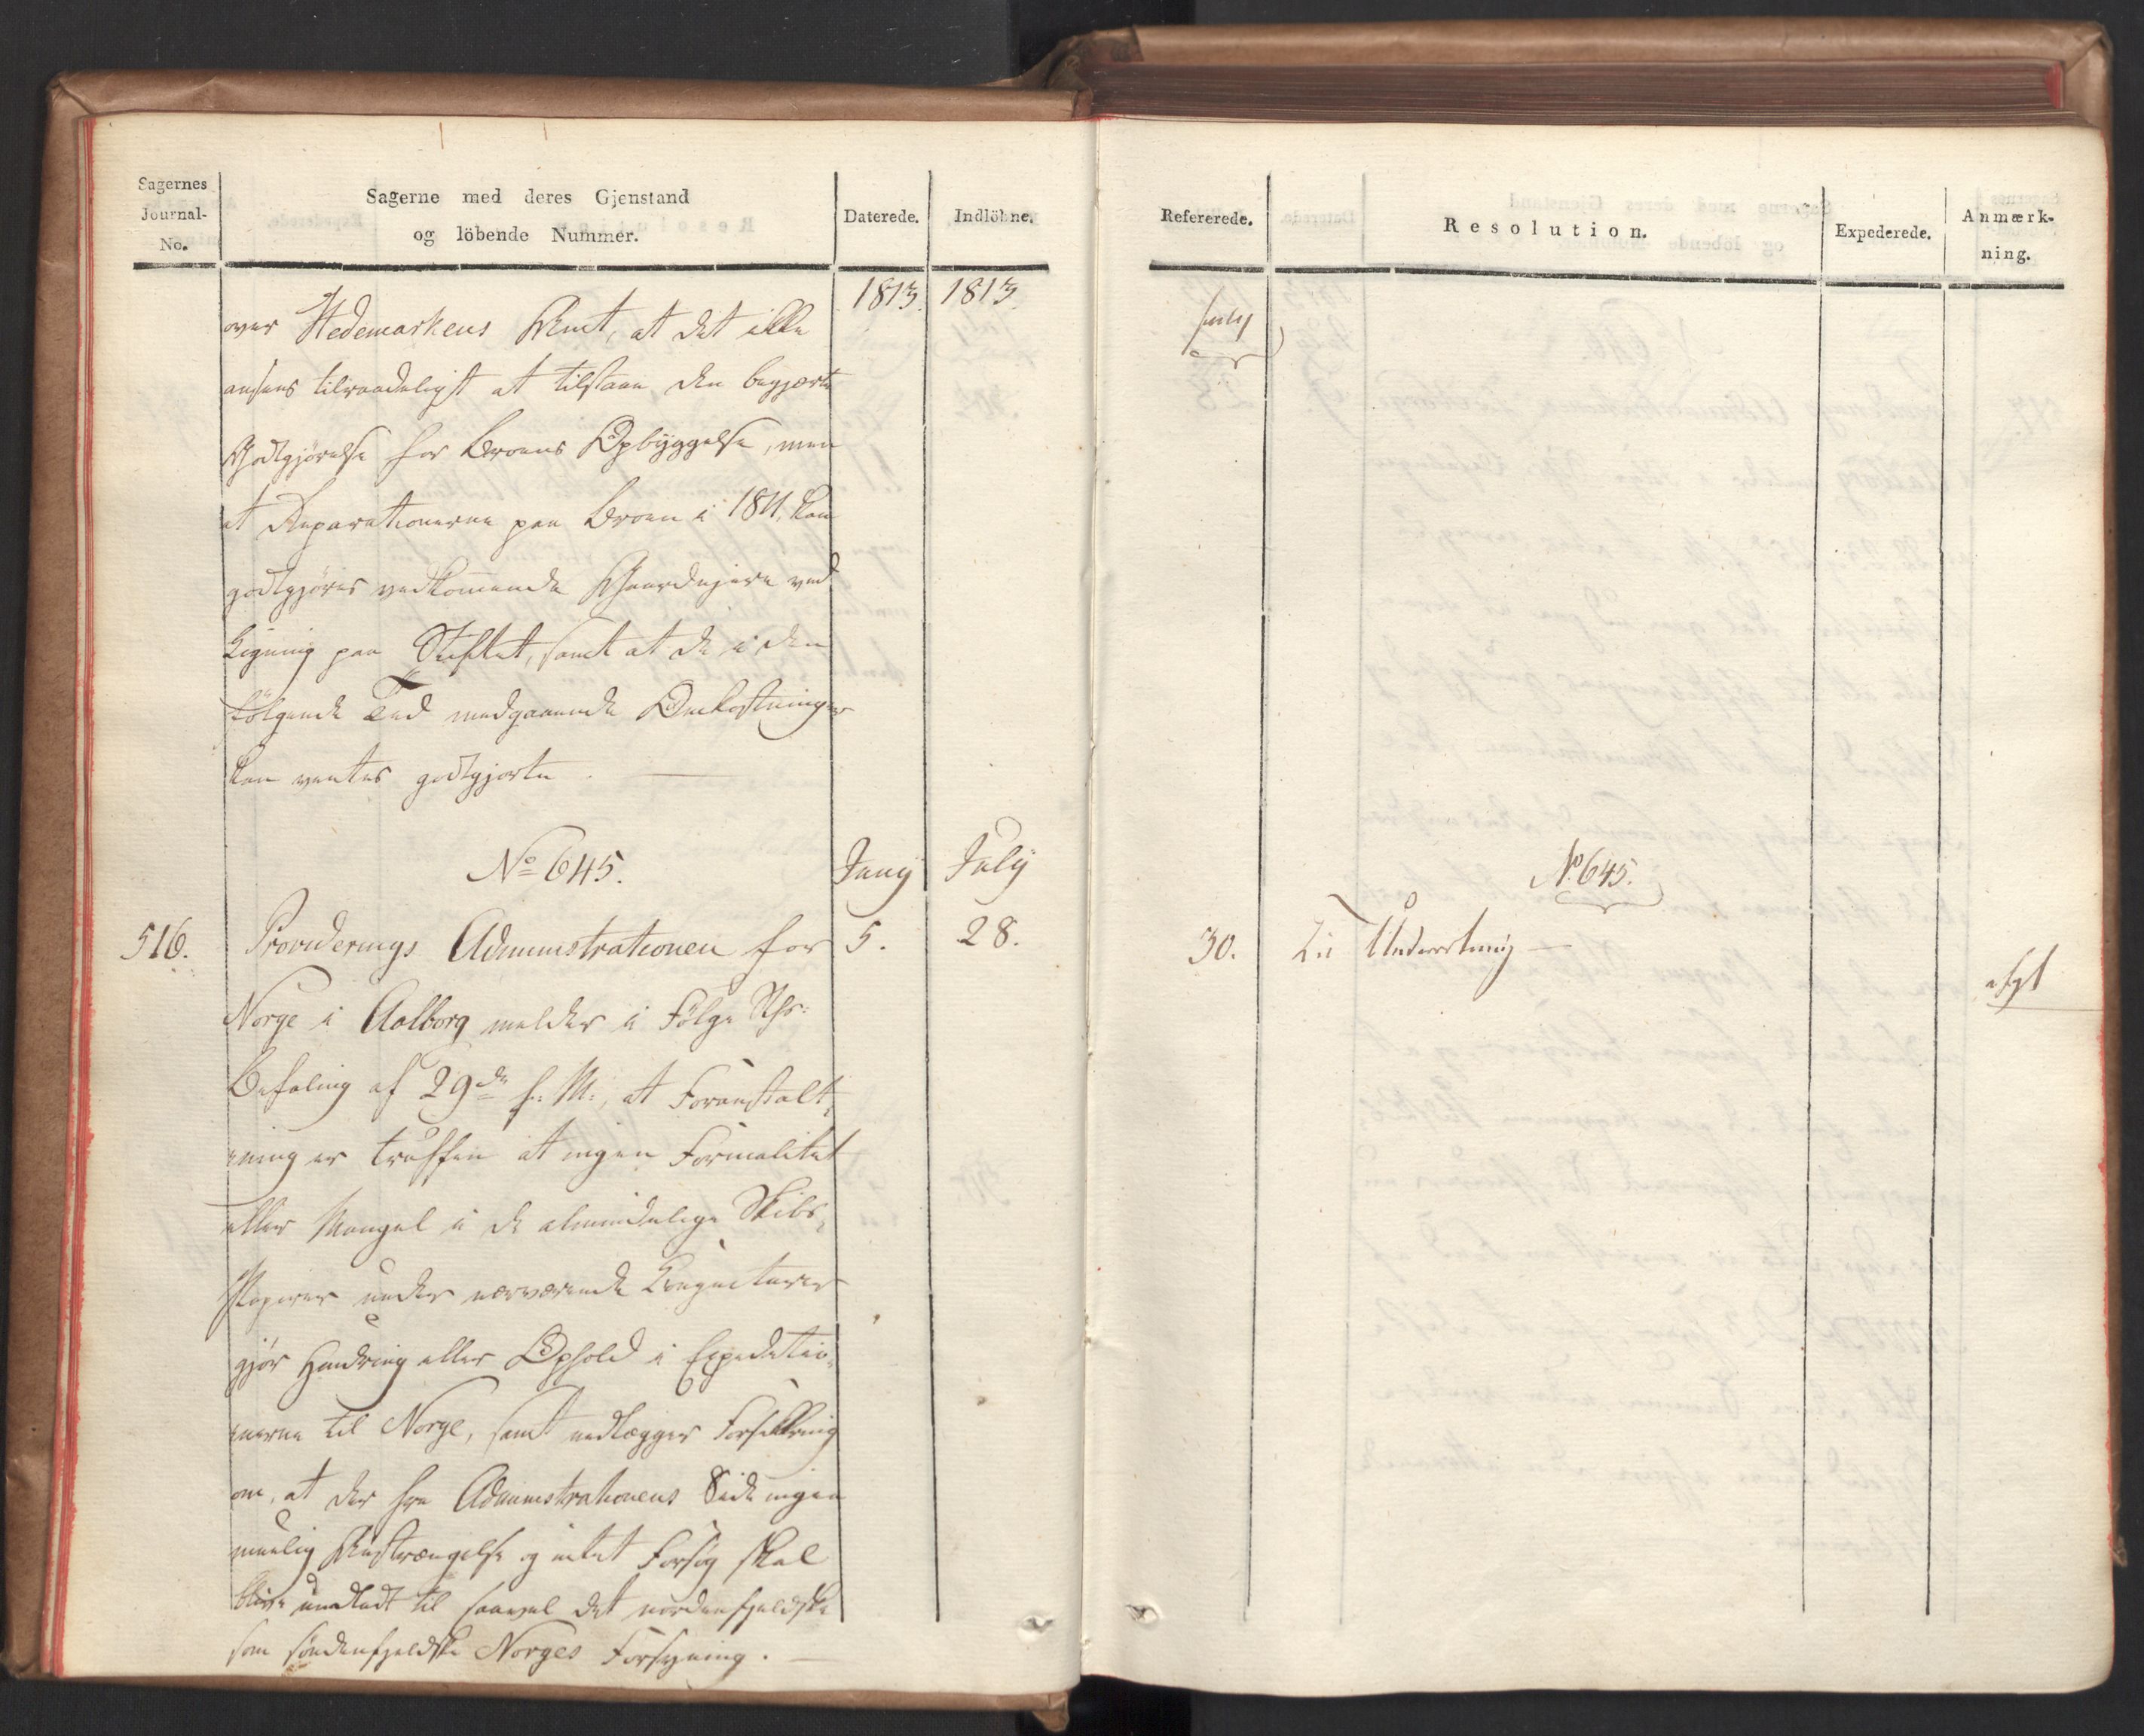 Sagernes
Journal-
No.
Sagerne med deres Gjenstand
og löbende Nummer.
Daterede.
Indlöbne.
1813.
1813.
over Hedemarkens Amt, at det ikke
ansees tilraadeligst at tilstaae den begjærte
Godtgjörelse for Broens Opbyggelse, men
at Reparationerne paa Broen i 1811, kan
godtgjöres vedkommende Gaardejere ved
Ligning paa Stiftet, samt at de i den
fölgende Tid medgaaende Omkostninger
kan ventes godtgjorte. —
No 645.
Juny
July
516.
Providerings Administrationen for
5.
28.
Norge i Aalborg melder i Fölge
Befaling af 29de f: M:, at Foranstalt-
ning er truffen at ingen Formalitet
eller Mangel i de almindelige Skibs-
Papirer under nærværende Conjuncturer
gjör Hindring eller Ophold i Expeditio-
nerne til Norge, samt nedlægger Forsikkring
om, at der fra Administrationens Side ingen
muelig Anstrængelse og intet Forsög skal
blive undladt til saavel det nordenfjeldske
som söndenfjeldske Norges Forsyning. —
Refererede.
Resolution.
Expederede.
Anmærk-
ning.
July
No 645.
30.
Til Underretning —
afgt